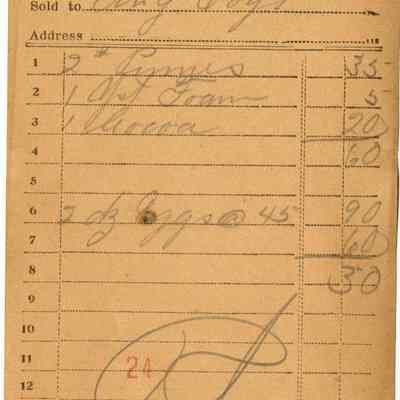 Sold to
Address 118
1 2# Prunes 35
2 1 Foam 5
3 1 Cocoa 20
4 60
5
6 2 dz Eggs @ 45 90
7 60
8 30
9
10
11 24
12